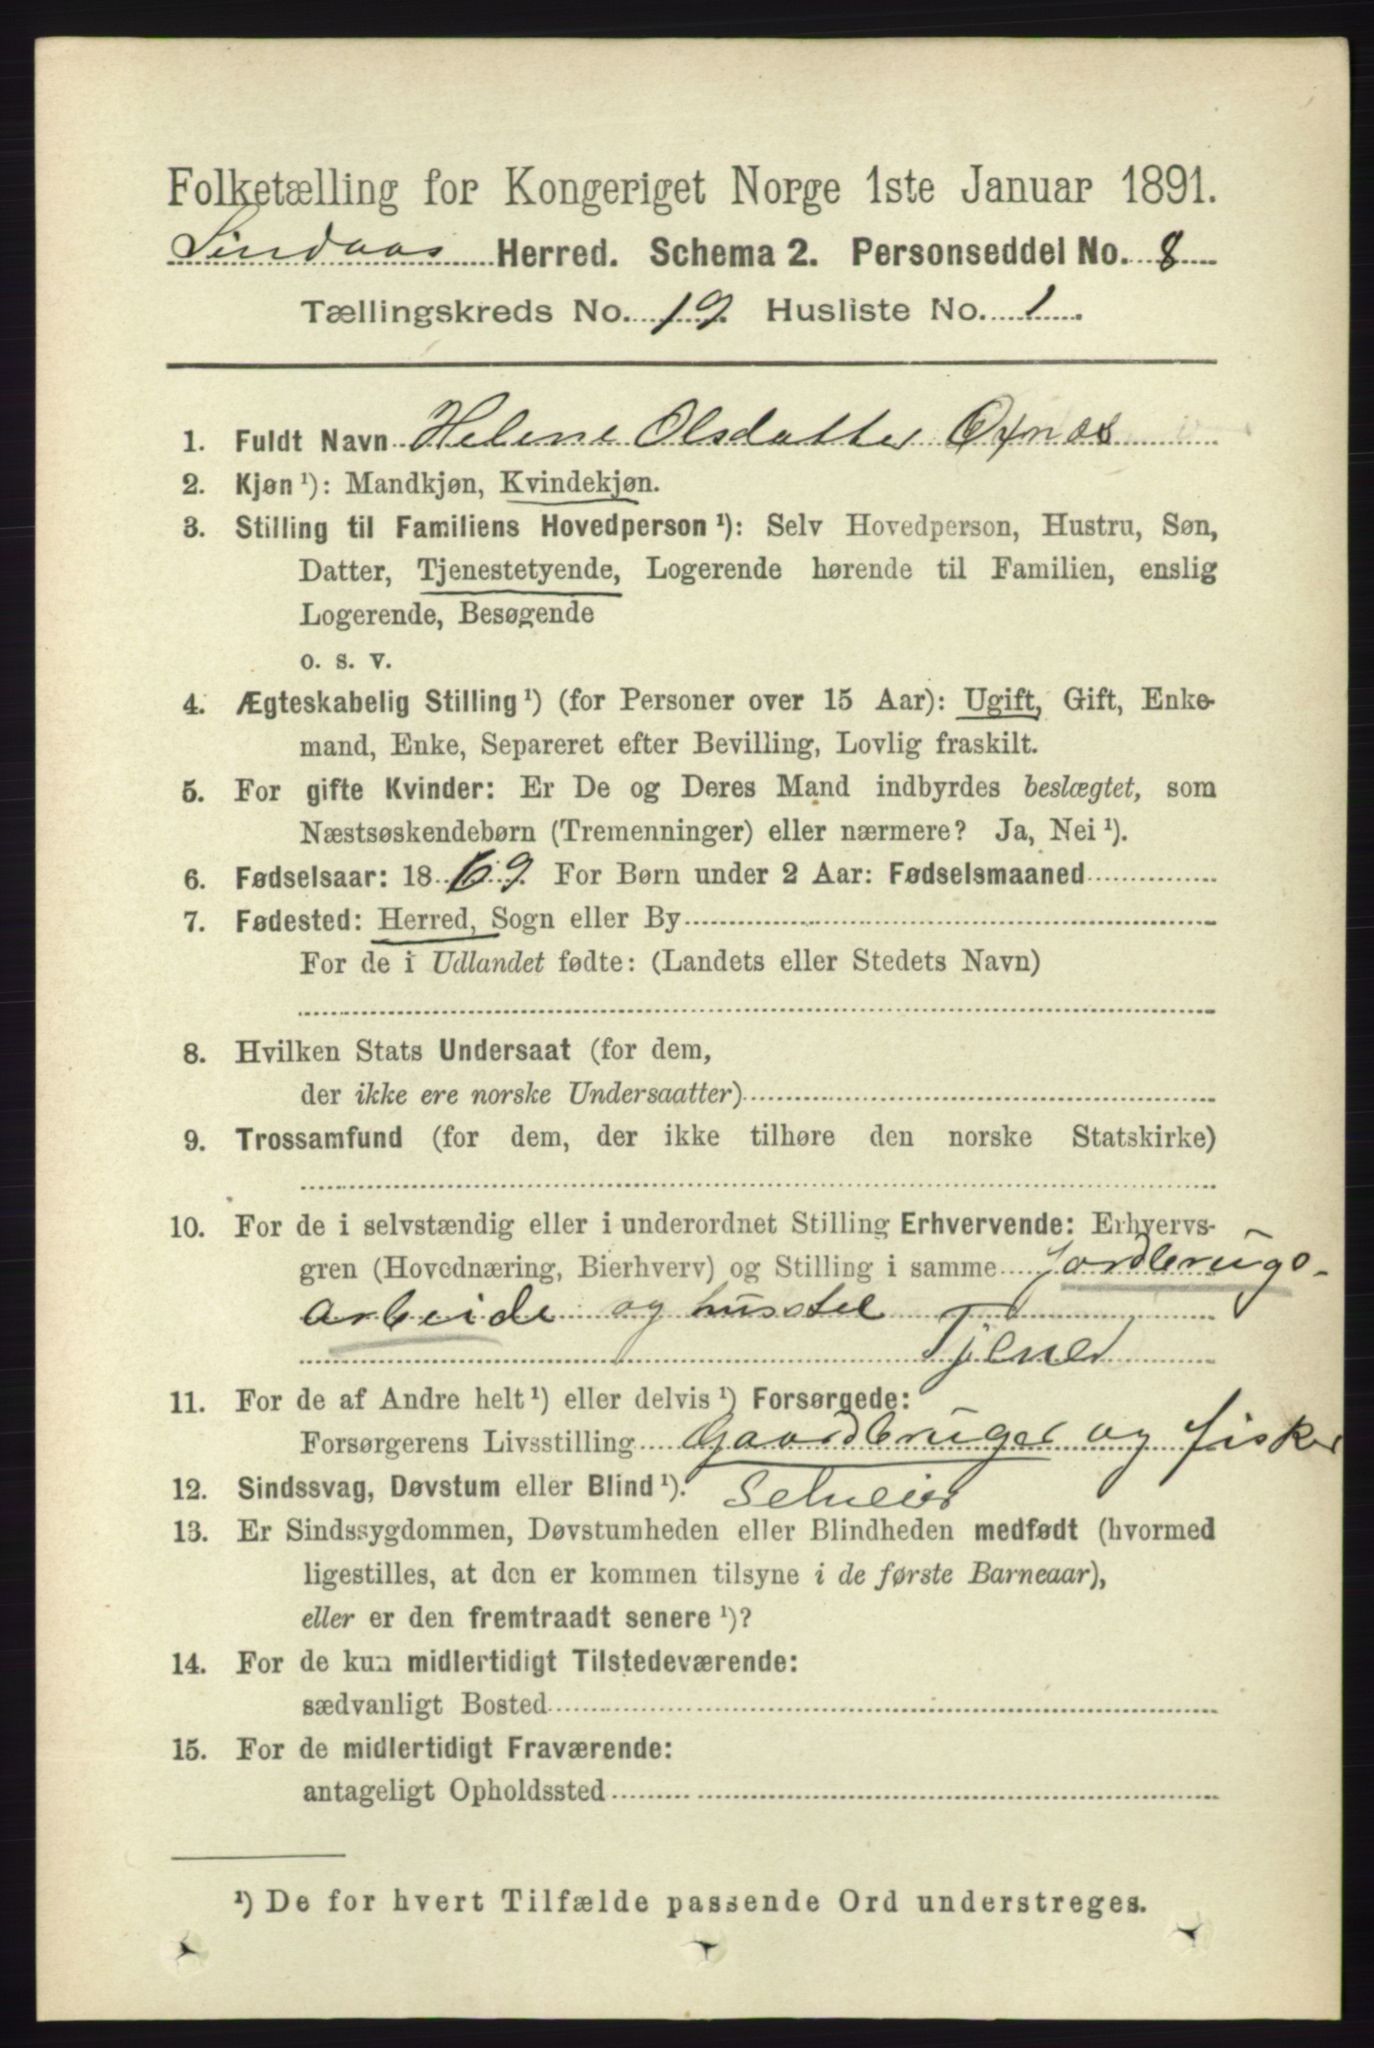 Folketælling for Kongeriget Norge 1ste Januar 1891.
Lindaas Herred. Schema 2. Personseddel No. 8
Tællingskreds No. 19 Husliste No. 1
1. Fuldt Navn Helene Olsdatter Oxnæs
2. Kjøn ¹): Mandkjøn, Kvindekjøn.
3. Stilling til Familiens Hovedperson ¹): Selv Hovedperson, Hustru, Søn,
Datter, Tjenestetyende, Logerende hørende til Familien, enslig
Logerende, Besøgende
o. s. v.
4. Ægteskabelig Stilling ¹) (for Personer over 15 Aar): Ugift, Gift, Enke-
mand, Enke, Separeret efter Bevilling, Lovlig fraskilt.
5. For gifte Kvinder: Er De og Deres Mand indbyrdes beslægtet, som
Næstsøskendebørn (Tremenninger) eller nærmere? Ja, Nei ¹).
6. Fødselsaar: 1869. For Børn under 2 Aar: Fødselsmaaned
7. Fødested: Herred, Sogn eller By
For de i Udlandet fødte: (Landets eller Stedets Navn)
8. Hvilken Stats Undersaat (for dem,
der ikke ere norske Undersaatter)
9. Trossamfund (for dem, der ikke tilhøre den norske Statskirke)
10. For de i selvstændig eller i underordnet Stilling Erhvervende: Erhvervs-
gren (Hovednæring, Bierhverv) og Stilling i samme Jordbrugs-
arbeide og husstel
Tjener
11. For de af Andre helt ¹) eller delvis ¹) Forsørgede:
Forsørgerens Livsstilling Gaardbruger og fisker
12. Sindssvag, Døvstum eller Blind ¹). Selveier
13. Er Sindssygdommen, Døvstumheden eller Blindheden medfødt (hvormed
ligestilles, at den er kommen tilsyne i de første Barneaar),
eller er den fremtraadt senere ¹)?
14. For de kun midlertidigt Tilstedeværende:
sædvanligt Bosted
15. For de midlertidigt Fraværende:
antageligt Opholdssted
¹) De for hvert Tilfælde passende Ord understreges.